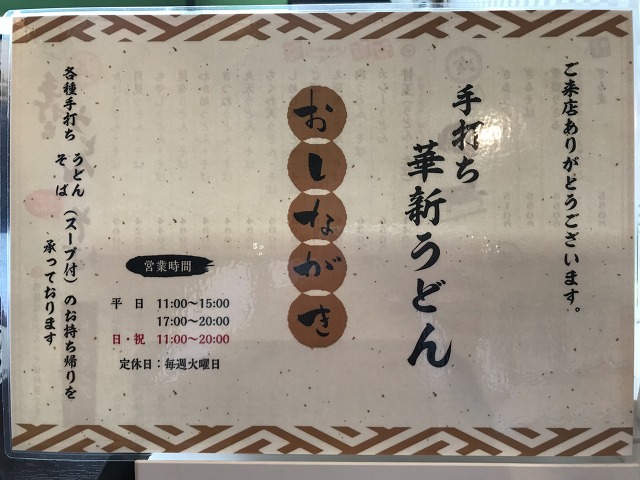 ご来店ありがとうございます。
手打ち
華新うどん
おしながき
営業時間
平 日 11:00〜15:00
17:00〜20:00
日・祝 11:00〜20:00
定休日：毎週火曜日
各種手打ち うどん そば (スープ付)のお持ち帰りを
承っております